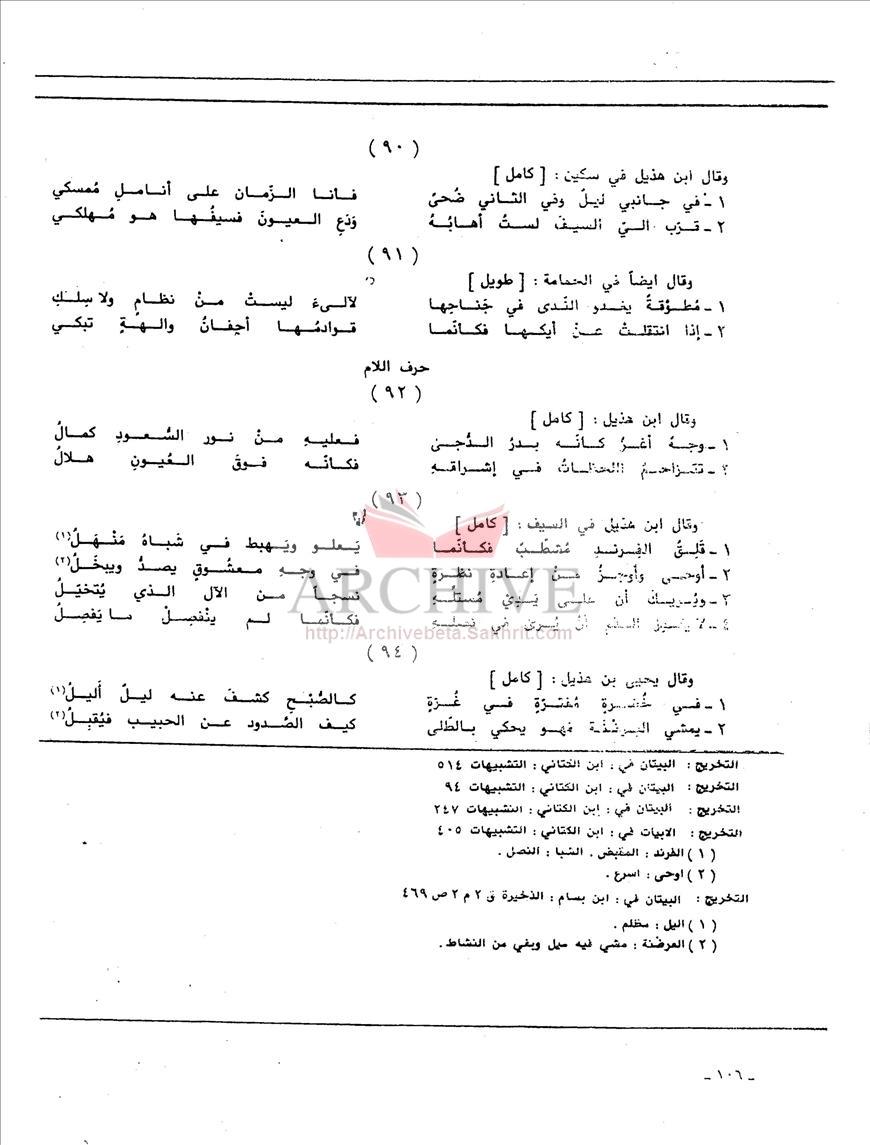 (٩٠)
وقال ابن هذيل في سكين : [ كامل ]
١ - في جانبي ليلٌ وفي الثاني ضُحىً فأنا الزّمان على أنامل مُمسكي
٢ - قرّب اليّ السيفَ لستُ أهابُهُ وَدَعِ العيونَ فسيفُها هو مُهلكي
(٩١)
وقال ايضاً في الحمامة : [ طويل ]
١ - مُطوّقةٌ يغدو النّدى في جَناحِها لآلىءَ ليستْ منْ نظامٍ ولا سِلكِ
٢ - إذا انتقلتْ عنْ أيكها فكأنّما قوادمُها أجفانُ والهةٍ تبكي
حرف اللام
(٩٢)
وقال ابن هذيل : [ كامل ]
١ - وجهٌ أغرُّ كأنّه بدرُ الدُّجى فعليهِ منْ نور السُّعودِ كمالُ
٢ - تتزاحم اللحظاتُ في إشراقهِ فكأنّه فوقَ العُيونِ هلالُ
(٩٣)
وقال ابن هذيل في السيف : [ كامل ]
١ - قَلِقُ الفرندِ مُشطّبٌ فكأنّما يَعلو ويَهبط في شباهُ مَنْهَلُ(١)
٢ - أوحى وأوجزُ منْ إعادةِ نظرةٍ في وجهِ معشوقٍ يصدُّ ويبخَلُ(٢)
٣ - ويُريك أن على يَديْ مُستلّهِ نسجاً من الآل الذي يُتخيّلُ
٤ - أنْ يُرى في فكأنّما لم ينْفصِلْ ما يَفصِلُ
(٩٤)
وقال يحيى بن هذيل : [ كامل ]
١ - في خُضرةٍ مُفترّةٍ في غُرّةٍ كالصُّبْحِ كشفَ عنه ليلٌ أليلُ(١)
٢ - يمشي العرضْنة فهو يحكي بالطّلى كيف الصّدود عن الحبيب فيُقبِلُ(٢)
التخريج : البيتان في : ابن الكتاني : التشبيهات ٥١٤
التخريج : البيتان في : ابن الكتاني : التشبيهات ٩٤
التخريج : البيتان في : ابن الكتاني : التشبيهات ٢٤٧
التخريج : الابيات في : ابن الكتاني : التشبيهات ٤٠٥
(١) الفرند : المقبض . الشبا : النصل .
(٢) اوحى : اسرع .
التخريج : البيتان في : ابن بسام : الذخيرة ق ٢ م ٢ ص ٤٦٩
(١) اليل : مظلم .
(٢) العرضنة : مشي فيه ميل وبغي من النشاط .
ARCHIVE
http://Archivebeta.Sakhrit.com
- ١٠٦ -